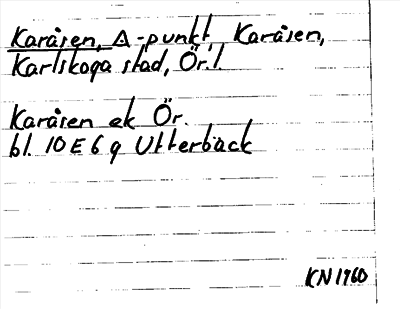 Karåsen, Δ-punkt, Karåsen,
Karlskoga stad, Ör. l.
Karåsen ek Ör.
bl. 10 E 6 g Utterbäck
KN 1960